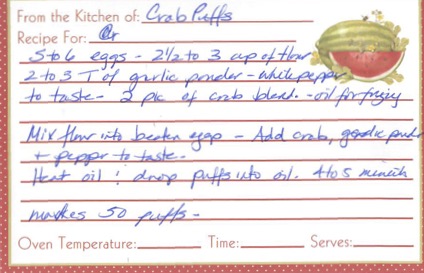 From the Kitchen of: Crab Puffs
Recipe For: Cr
5 to 6 eggs - 2 1/2 to 3 cup of flour
2 to 3 T of garlic powder - white pepper
to taste - 2 pk of crab blend. - oil for frying
Mix flour into beaten eggs - Add crab, garlic powder
+ pepper to taste.
Heat oil ! drop puffs into oil. 4 to 5 minutes
makes 50 puffs -
Oven Temperature: Time: Serves: